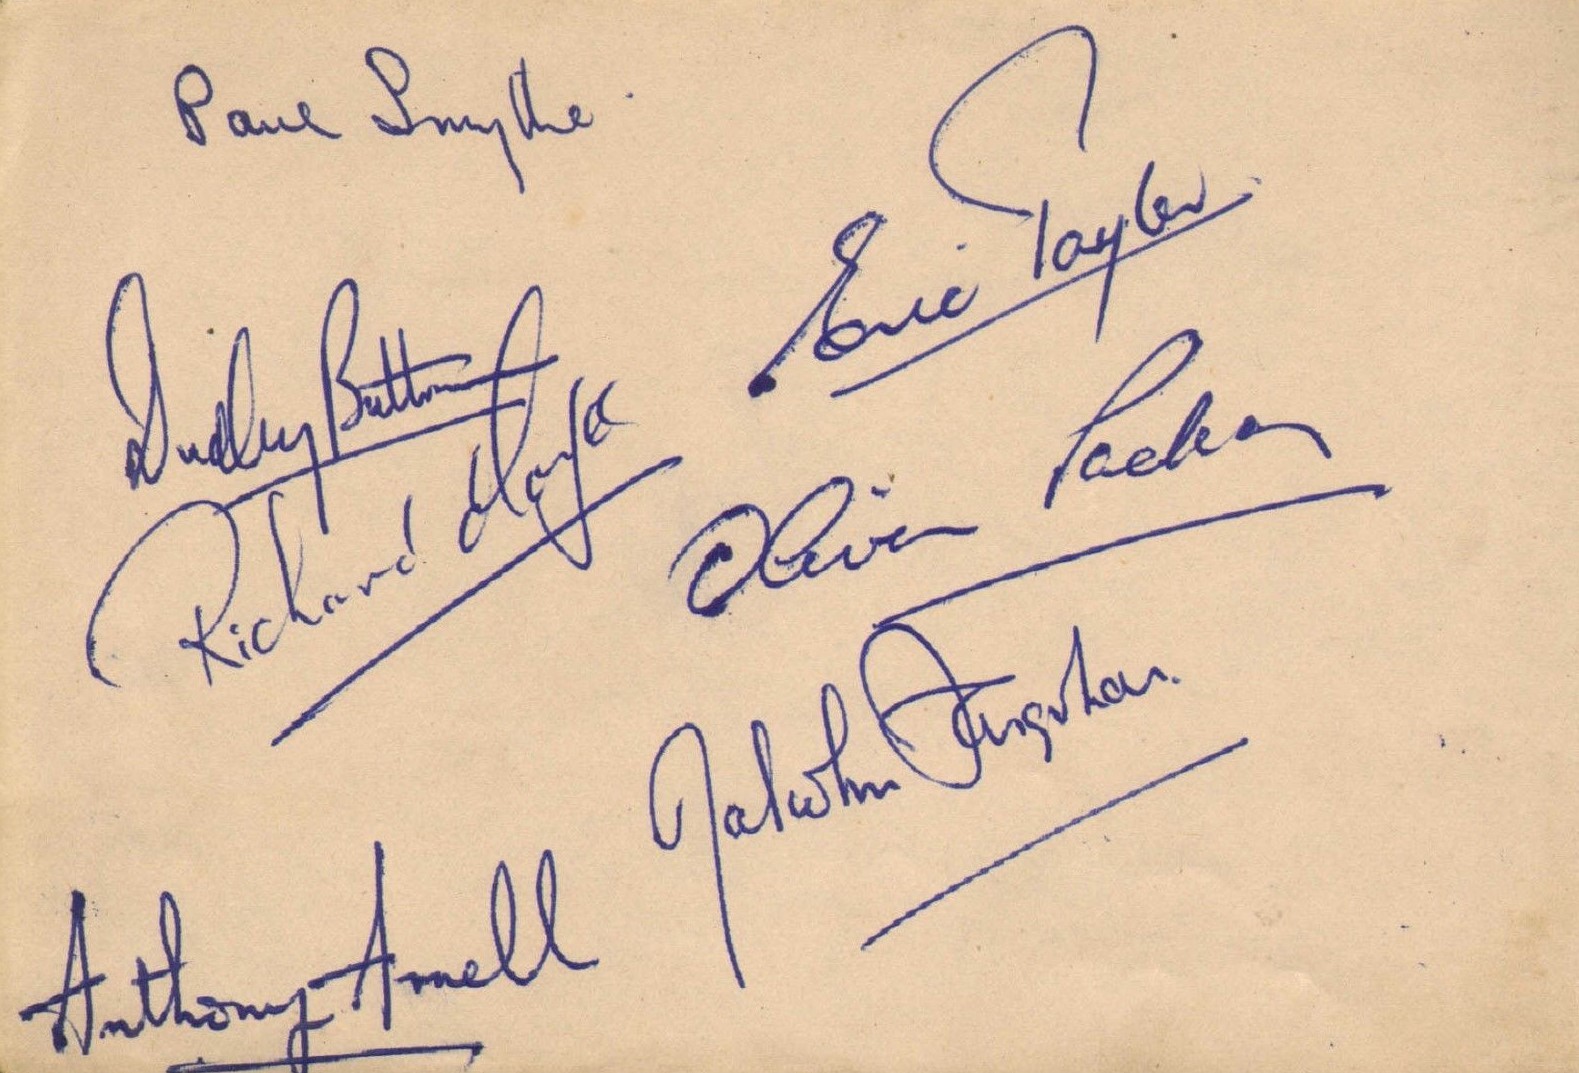 Paul Smythe
Eric Taylor
Dudley Buttrum
Richard
Oliver Packer
Malcolm Farquhar
Anthony Arnell